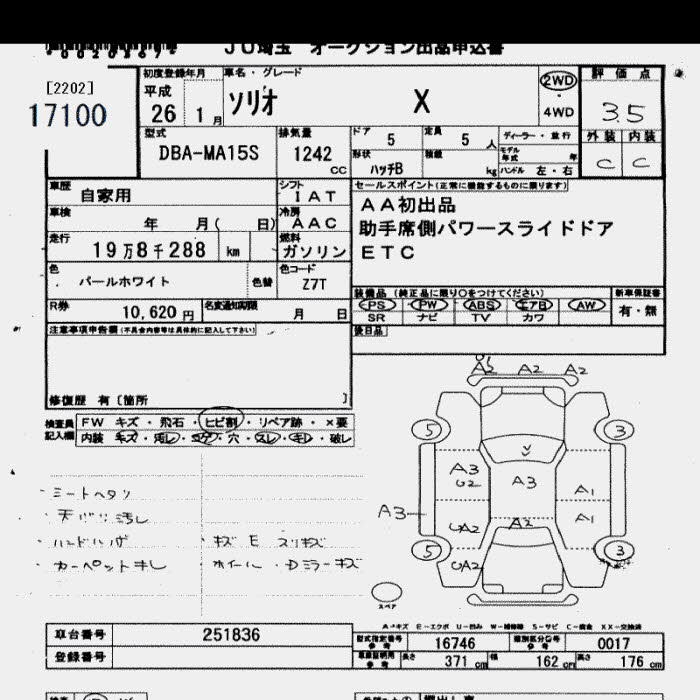 *0020867*
JU埼玉 オークション出品申込書
[2202]
17100
初度登録年月 車名・グレード
平成
26 1月 ソリオ X
2WD
・
4WD
評価点
3.5
外装 内装
C C
型式 排気量
DBA-MA15S 1242 CC
ドア 5 定員 5 人
形状 ハッチB 積載 kg
ディーラー・並行
モデル年式 年
ハンドル 左・右
車歴 自家用 シフト IAT
車検 年 月( 日) 冷房 AAC
走行 19万8千288 km 燃料 ガソリン
色 パールホワイト 色替 色コード Z7T
R券 10,620円 名変通知期限 月 日
セールスポイント(正常に機能するものに限ります)
AA初出品
助手席側パワースライドドア
ETC
装備品(純正品に限り○をつけてください) 新車保証書
PS PW ABS エアB AW 有・無
SR ナビ TV カワ
後日品
注意事項申告欄(不具合内容等は具体的に記入して下さい)
修復歴 有〔箇所 〕
検査員記入欄
FW キズ・飛石・ヒビ割・リペア跡・×要
内装 キズ・汚レ・コゲ・穴・スレ・キレ・破レ
・シートヘタリ
・天バリ汚レ
・カーペットキレ
・キズ E スリキズ
・ホイール・Dミラーキズ
A2 A2 A2
5 3
A3
U2
A3
A1
A3
A1
UA2
A2
5 3
UA2
スペア
A-キズ E-エクボ U-凹み W-補修跡 S-サビ C-腐食 XX-交換済
車台番号 251836
登録番号
型式指定番号 参考 16746 類別区分番号 参考 0017
車庫証明用 参考 長さ 371 cm 幅 162 cm 高さ 176 cm